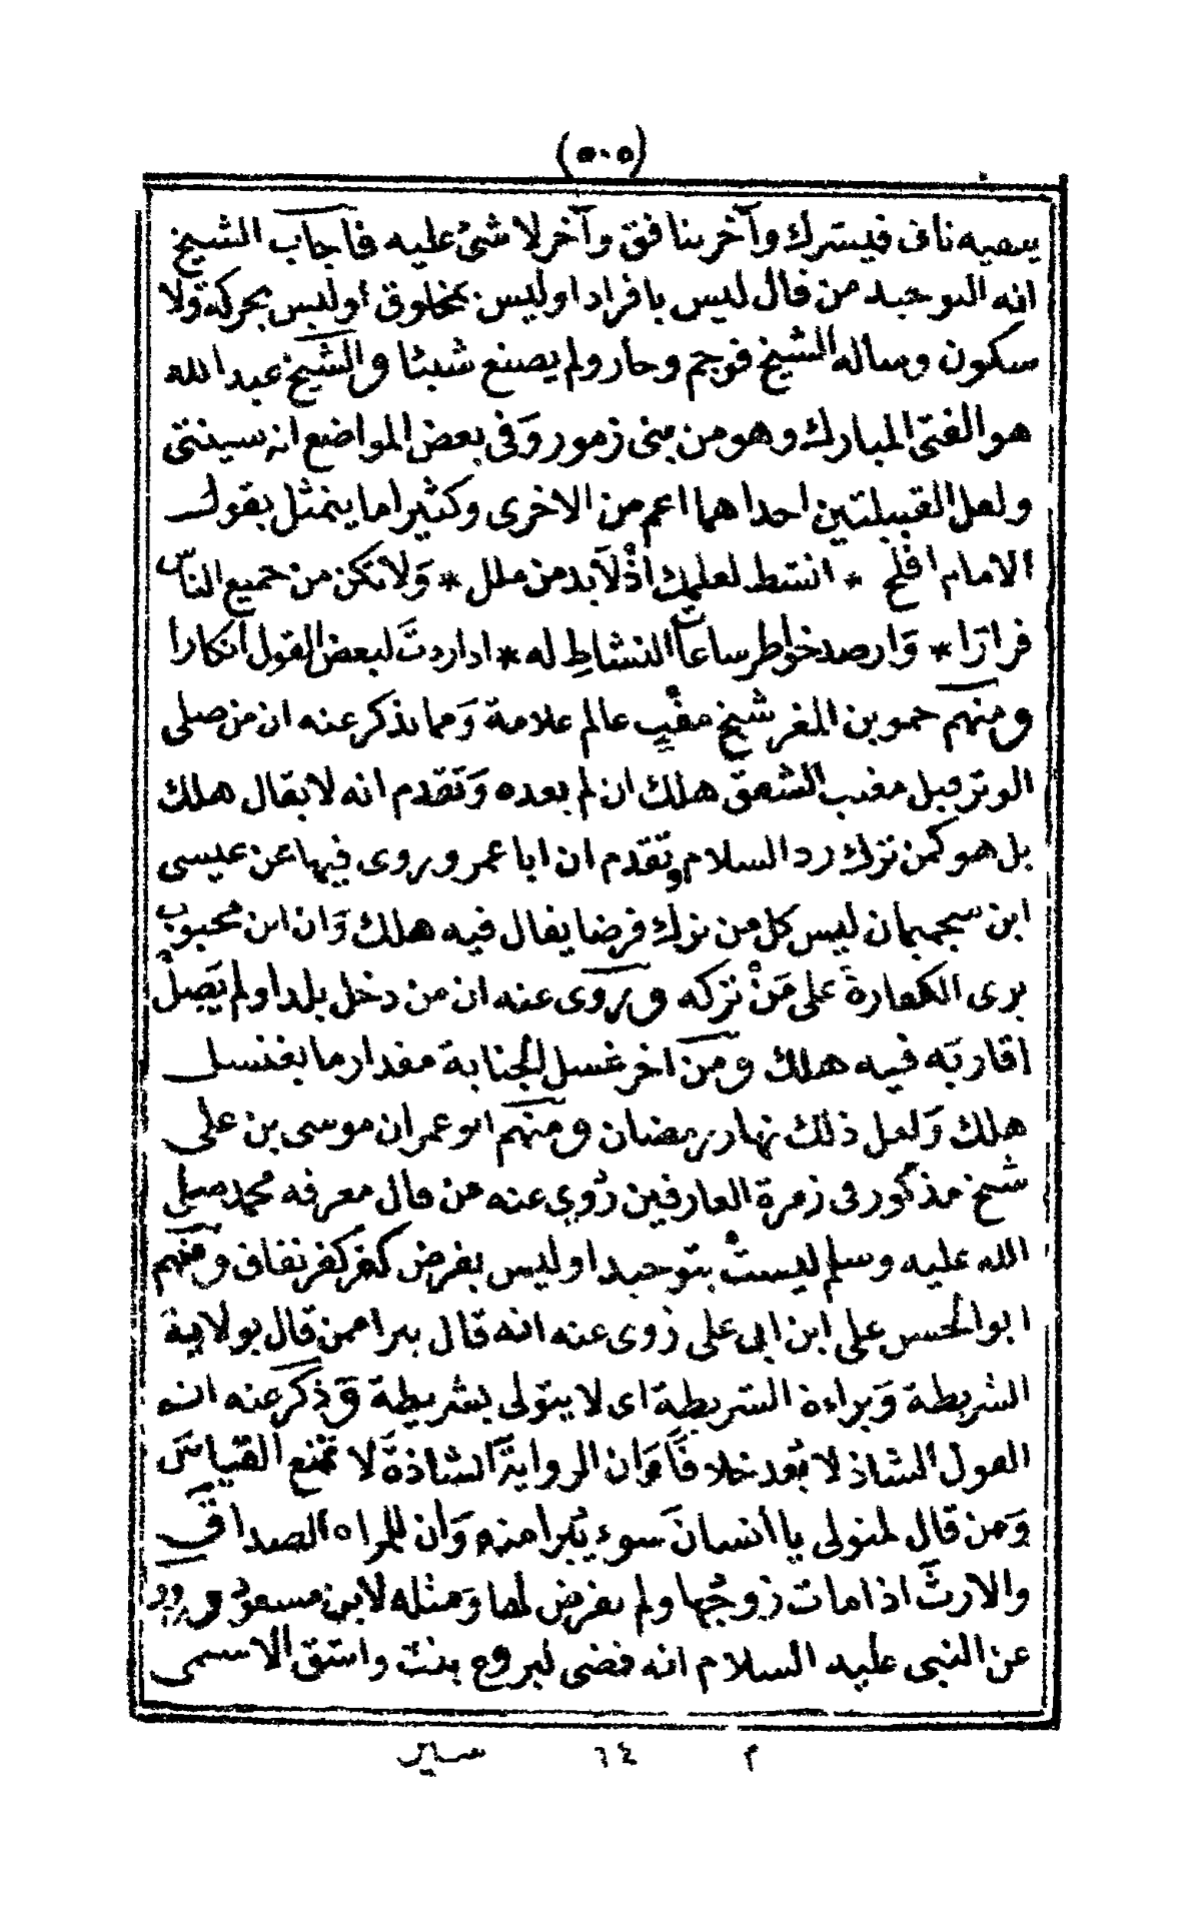 (٥٠٥)
يعصيه ناف فيشرك وآخر ينافق وآخر لا شئ عليه فاجاب الشيخ
انه التوحيد من قال ليس بافراد او ليس بمخلوق او ليس بحركة ولا
سكون وساله الشيخ فوجم وحار ولم يصنع شيئا والشيخ عبد الله
هو الفتى المبارك وهو من بنى زمور وَفى بعض المواضع انه سينتنى
ولعل القبيلتين احداهما اعم من الاخرى وكثيرا ما يتمثل بقول
الامام افلح * انشط لعلمك اذْ لاَبد من ملل * وَلا تكن من جميع الناس
فرارًا * وَارصد خواطر ساعات النشاطِ له * اذا ردتَ لبعض القول انكارا
ومنهم حمو بن المغر شيخ مفْتٍ عالم علامة وَمما يذكر عنه ان من صلى
الوتر قبل مغيب الشفق هلك ان لم يعده وَتقدم انه لا يقال هلك
بل هو كمن ترك رد السلام وتقدم ان ابا عمرو روى فيها عن عيسى
ابن سجميمان ليس كل من ترك فرضا يقال فيه هلك وَان ابن محبوب
يرى الكفارة على مَنْ تركه ورَوى عنه ان من دخل بلدا ولم يَصلْ
اقاربَه فيه هلك ومَن اخر غسل الجنابة مقدار ما يغتسل
هلك وَلعل ذلك نهار رمضان ومنهم ابو عمران موسى بن على
شيخ مذكور فى زمرة العارفين رُوى عنه من قال معرفه محمد صلى
الله عليه وسلم ليستْ بتوحيد او ليس بفرض كفر كفر نفاق ومنهم
ابو الحسن على ابن ابى على رُوى عنه انه قال يبرا ممن قال بولاية
الشريطة وَبراءة الشريطة اى لا يتولى بشريطة وَذكر عنه انه
القول الشاذ لا يُعد خلافاً وَان الروايَة الشاذة لا تمنع القياسَ
وَمن قال لمتولى يا انسانَ سوء يُبرا منه وَان للمراه الصداقَ
والارثَ اذا مات زوجُها ولم يفرض لها وَمثله لابن مسعود وروى
عن النبى عليه السلام انه قضى لبروع بنت واشق الاسمى
م ٦٤ سير